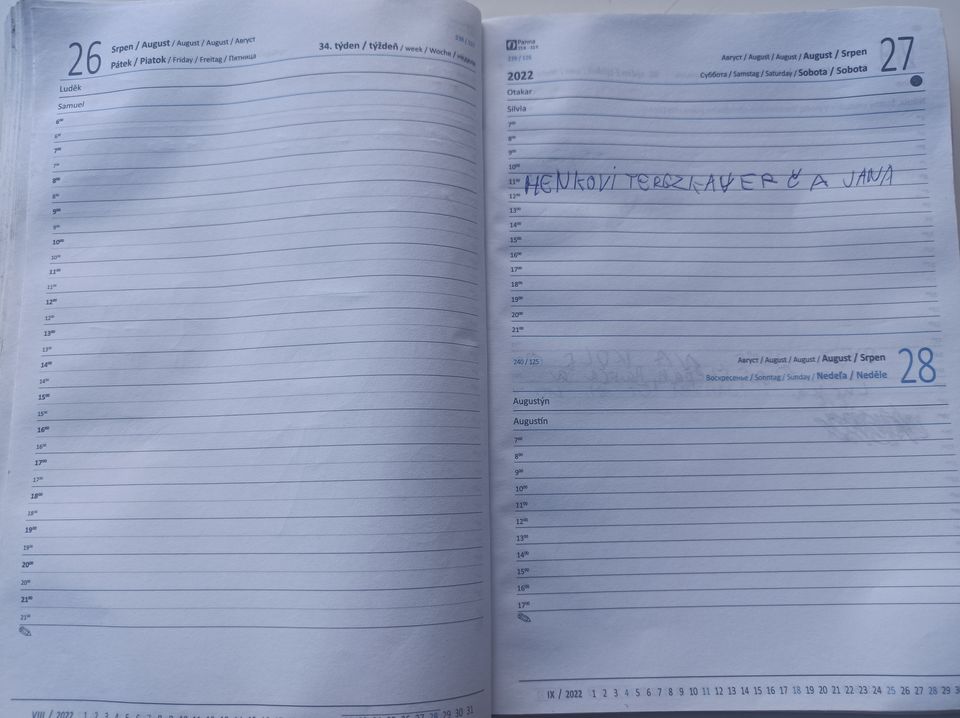 26
Srpen / August / August / August / Август
Pátek / Piatok / Friday / Freitag / Пятница
34. týden / týždeň / week / Woche /
Luděk
Samuel
6⁰⁰
6³⁰
7⁰⁰
7³⁰
8⁰⁰
8³⁰
9⁰⁰
9³⁰
10⁰⁰
10³⁰
11⁰⁰
11³⁰
12⁰⁰
12³⁰
13⁰⁰
13³⁰
14⁰⁰
14³⁰
15⁰⁰
15³⁰
16⁰⁰
16³⁰
17⁰⁰
17³⁰
18⁰⁰
18³⁰
19⁰⁰
19³⁰
20⁰⁰
20³⁰
21⁰⁰
21³⁰
VIII / 2022 1 2 3 29 30 31
Panna
239 / 126
2022
Август / August / August / August / Srpen
Суббота / Samstag / Saturday / Sobota / Sobota
27
Otakar
Silvia
7⁰⁰
8⁰⁰
9⁰⁰
10⁰⁰
11⁰⁰ HENKOVI A JANA
12⁰⁰
13⁰⁰
14⁰⁰
15⁰⁰
16⁰⁰
17⁰⁰
18⁰⁰
19⁰⁰
20⁰⁰
21⁰⁰
240 / 125
Август / August / August / August / Srpen
Воскресенье / Sonntag / Sunday / Nedeľa / Neděle
28
Augustýn
Augustín
7⁰⁰
8⁰⁰
9⁰⁰
10⁰⁰
11⁰⁰
12⁰⁰
13⁰⁰
14⁰⁰
15⁰⁰
16⁰⁰
17⁰⁰
IX / 2022 1 2 3 4 5 6 7 8 9 10 11 12 13 14 15 16 17 18 19 20 21 22 23 24 25 26 27 28 29